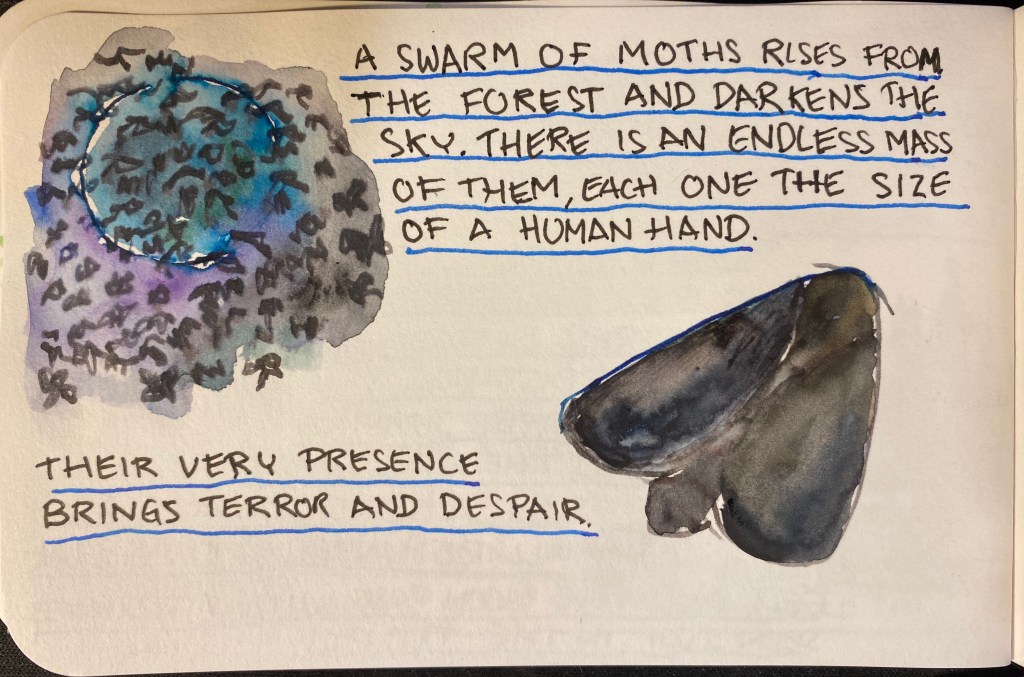 A SWARM OF MOTHS RISES FROM
THE FOREST AND DARKENS THE
SKY. THERE IS AN ENDLESS MASS
OF THEM, EACH ONE THE SIZE
OF A HUMAN HAND.
THEIR VERY PRESENCE
BRINGS TERROR AND DESPAIR.